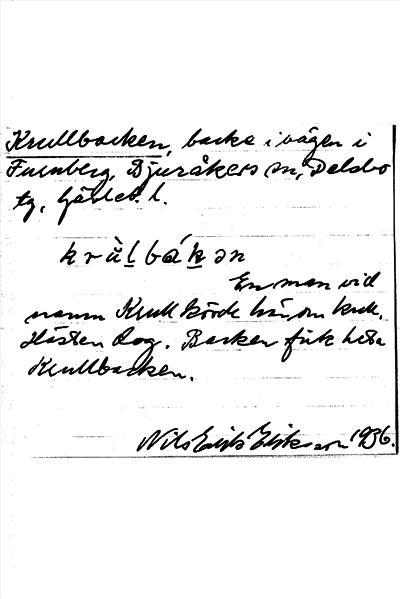 Krullbacken, backe i vägen i
Furuberg, Bjuråkers sn, Delsbo
tg, Gävleb. l.
krùl bákən
En man vid
namn Krull körde här om kull.
Hästen dog. Backen fick heta
Krullbacken.
Nils Erik Eriksson 1936.